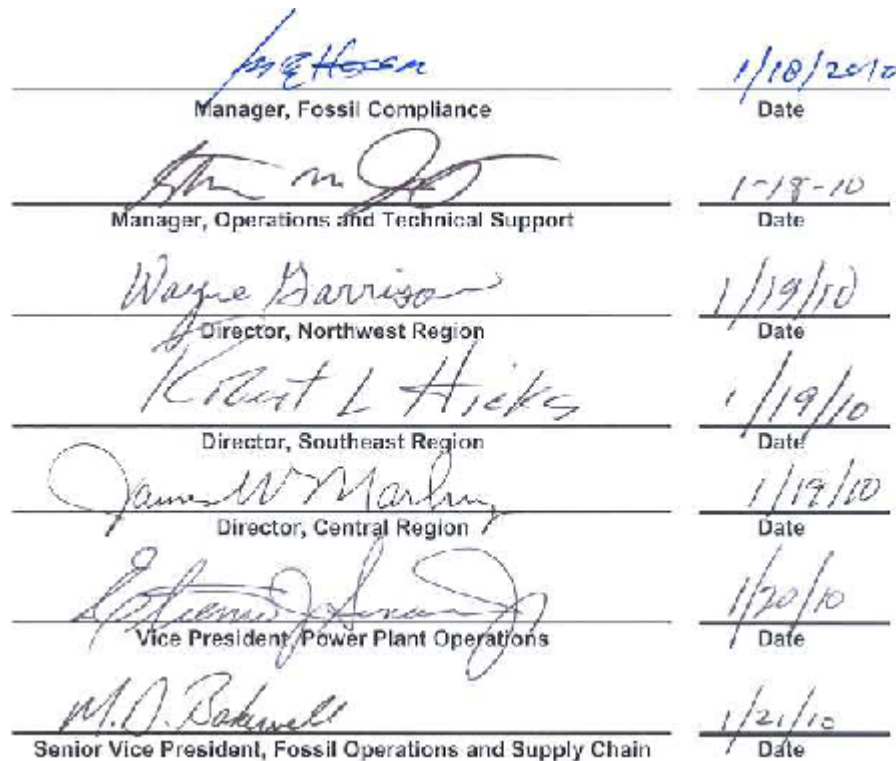 1/18/2010
Manager, Fossil Compliance Date
m 1-18-10
Manager, Operations and Technical Support Date
Wayne Garrison 1/19/10
Director, Northwest Region Date
Robert L Hicks 1/19/10
Director, Southeast Region Date
James W 1/19/10
Director, Central Region Date
1/20/10
Vice President, Power Plant Operations Date
M.D. Bakewell 1/21/10
Senior Vice President, Fossil Operations and Supply Chain Date